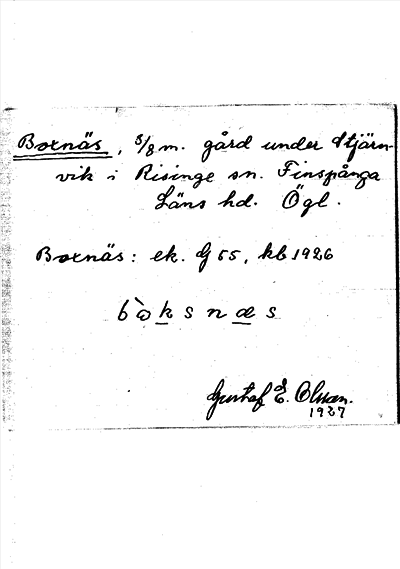 Boxnäs, 3/8 m. gård under Stjärn-
vik i Risinge sn. Finspånga
Läns hd. Ögl.
Boxnäs: ek. G 55, kb 1926
bòksnæs
Gustaf E. Olsson.
1927